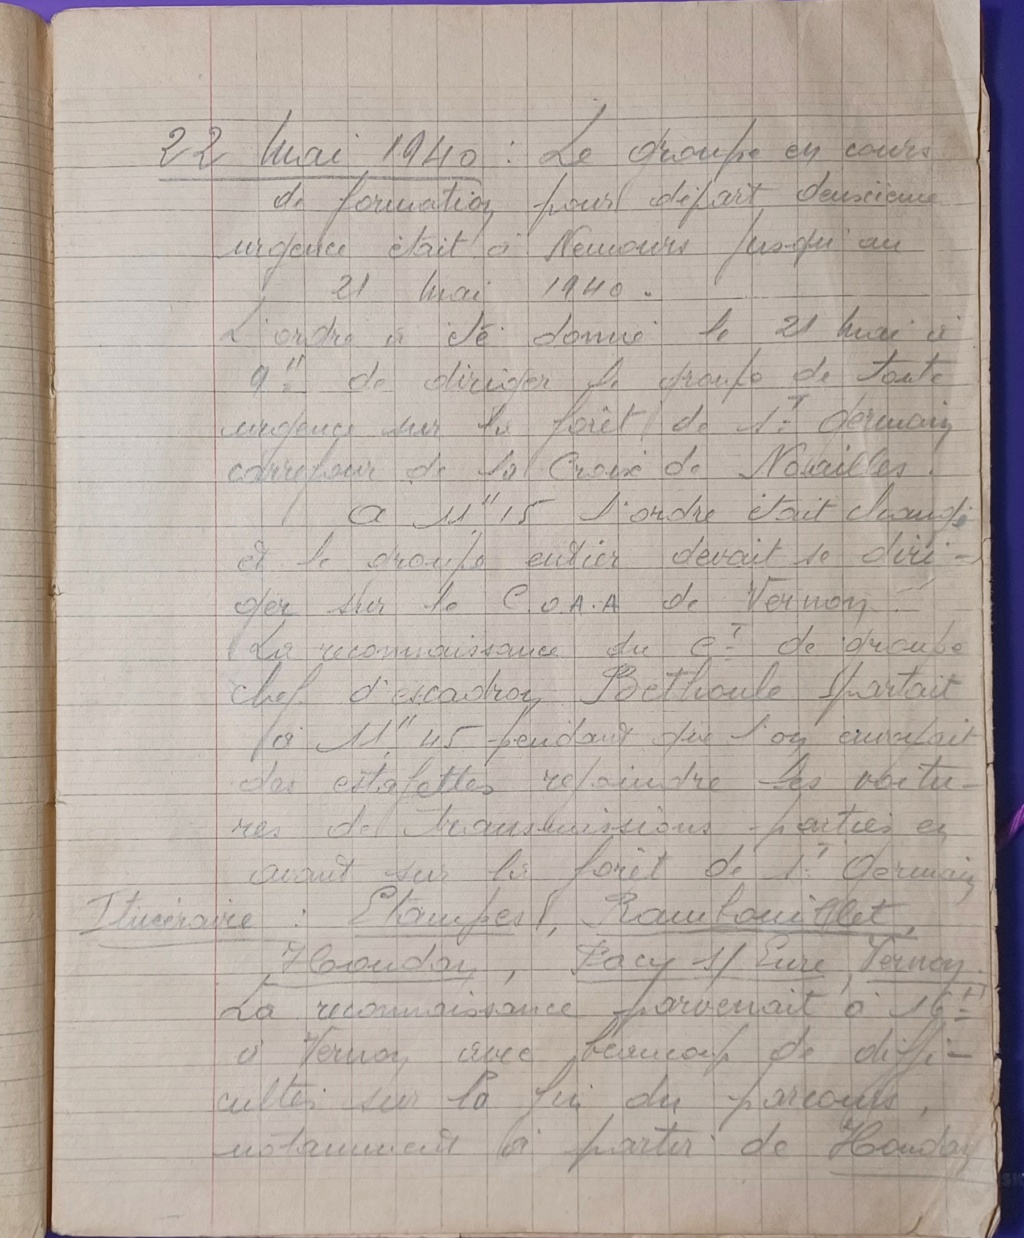 22 Mai 1940 : Le groupe en cours
de formation pour départ deuxième
urgence était à Nemours jusqu'au
21 Mai 1940.
L'ordre a été donné le 21 Mai à
9H de diriger le groupe de toute
urgence sur la forêt de St Germain
carrefour de la Croix de Noailles.
A 11H15 l'ordre était changé
et le groupe entier devait se diri-
ger sur le C.O.A.A de Vernon.
La reconnaissance du Ct de groupe
chef d'escadron Bethoule partait
à 11H45 pendant que l'on envoyait
des estafettes rejoindre les voitu-
res de transmissions parties en
avant sur la forêt de St Germain
Itinéraire : Etampes, Rambouillet,
Houdan, Pacy s/ Eure, Vernon.
La reconnaissance parvenait à 16H
à Vernon avec beaucoup de diffi-
cultés sur la fin du parcours,
notamment à partir de Houdan